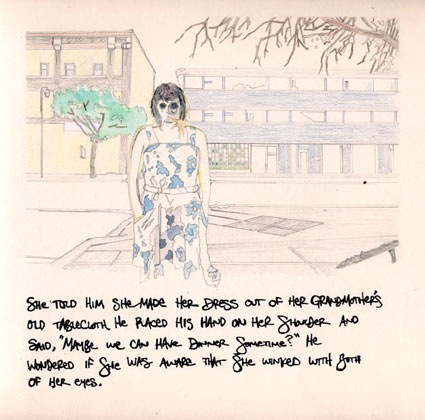 SHE TOLD HIM SHE MADE HER DRESS OUT OF HER GRANDMOTHER'S
OLD TABLECLOTH. HE PLACED HIS HAND ON HER SHOULDER AND
SAID, "MAYBE WE CAN HAVE DINNER SOMETIME?" HE
WONDERED IF SHE WAS AWARE THAT SHE WINKED WITH BOTH
OF HER EYES.